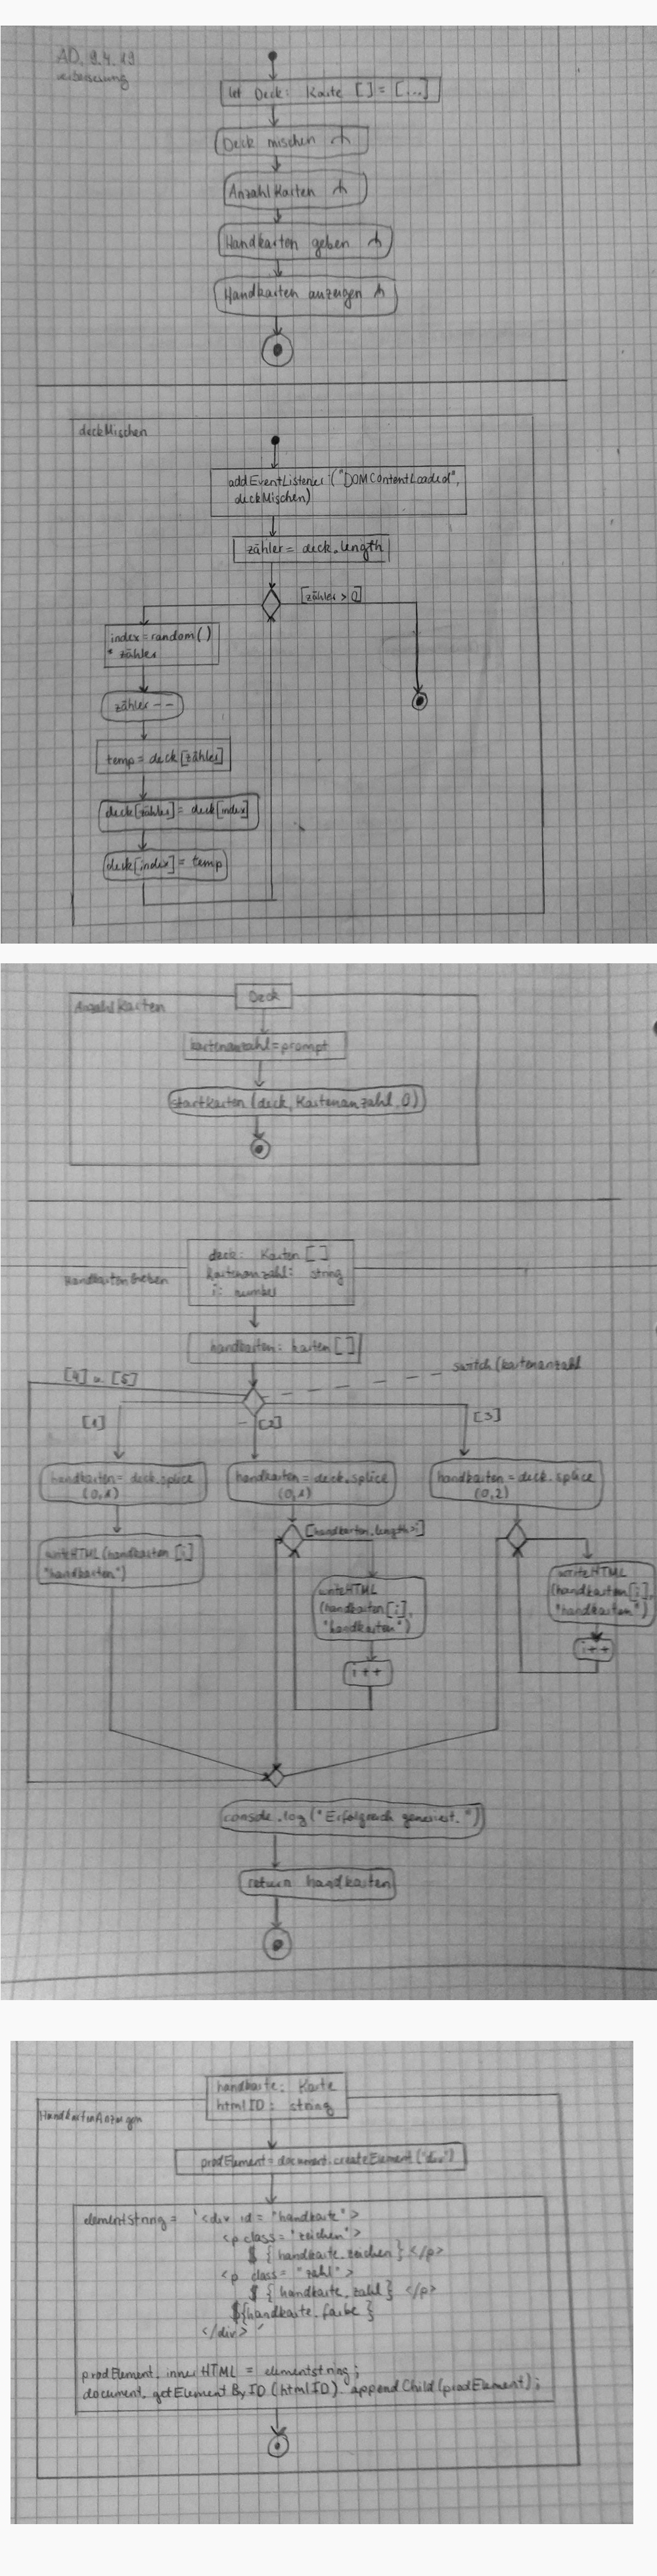 AD, 9.4.19
verbesserung
let Deck: Karte [ ] = [...]
Deck mischen
Anzahl Karten
Handkarten geben
Handkarten anzeigen
deckMischen
addEventListener ("DOMContentLoaded",
deckMischen)
zähler = deck.length
[zähler > 0]
index = random( )
* zähler
zähler - -
temp = deck [zähler]
deck[zähler] = deck[index]
deck[index] = temp
Anzahl Karten
Deck
kartenanzahl = prompt
startkarten (deck, Kartenanzahl, 0)
deck: Karten [ ]
kartenanzahl: string
i: number
Handkarten Geben
handkarten: karten [ ]
switch (kartenanzahl
[4] u. [5]
[1]
[2]
[3]
handkarten = deck.splice
(0,1)
handkarten = deck.splice
(0,1)
handkarten = deck.splice
(0,2)
[handkarten.length>i]
writeHTML (handkarten [i]
"handkarten")
writeHTML
(handkarten[i],
"handkarten")
i++
writeHTML
(handkarten[i],
"handkarten")
i++
console.log ("Erfolgreich generiert.")
return handkarten
handkarte: Karte
htmlID: string
HandkartenAnzeigen
prodElement = document.createElement ("div")
elementString = `<div id = "handkarte">
<p class = "zeichen">
$ { handkarte.zeichen } </p>
<p class = "zahl">
$ { handkarte.zahl } </p>
${handkarte.farbe }
</div> `
prodElement.innerHTML = elementstring;
document.getElementByID (htmlID).appendChild (prodElement);